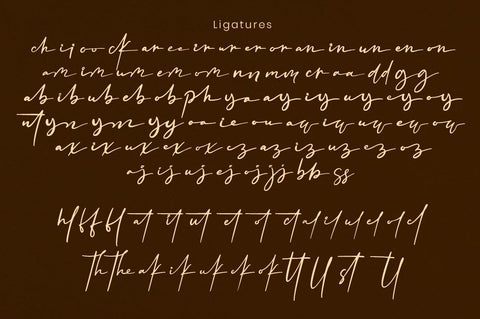 Ligatures
ch ij oo ck ar ee ir ur er or an in un en on
am im um em om nn mm cr aa dd gg
ab ib ub eb ob ph ya ay iy uy ey oy
yn ym yy oa ie ou aw iw uw ew ow
ax ix ux ex ox ez az iz uz ez oz
aj ij uj ej oj jj bb ss
ff fl at it ut et ot ct al il ul el ol cl
th the ak ik uk ck ok tt ll st